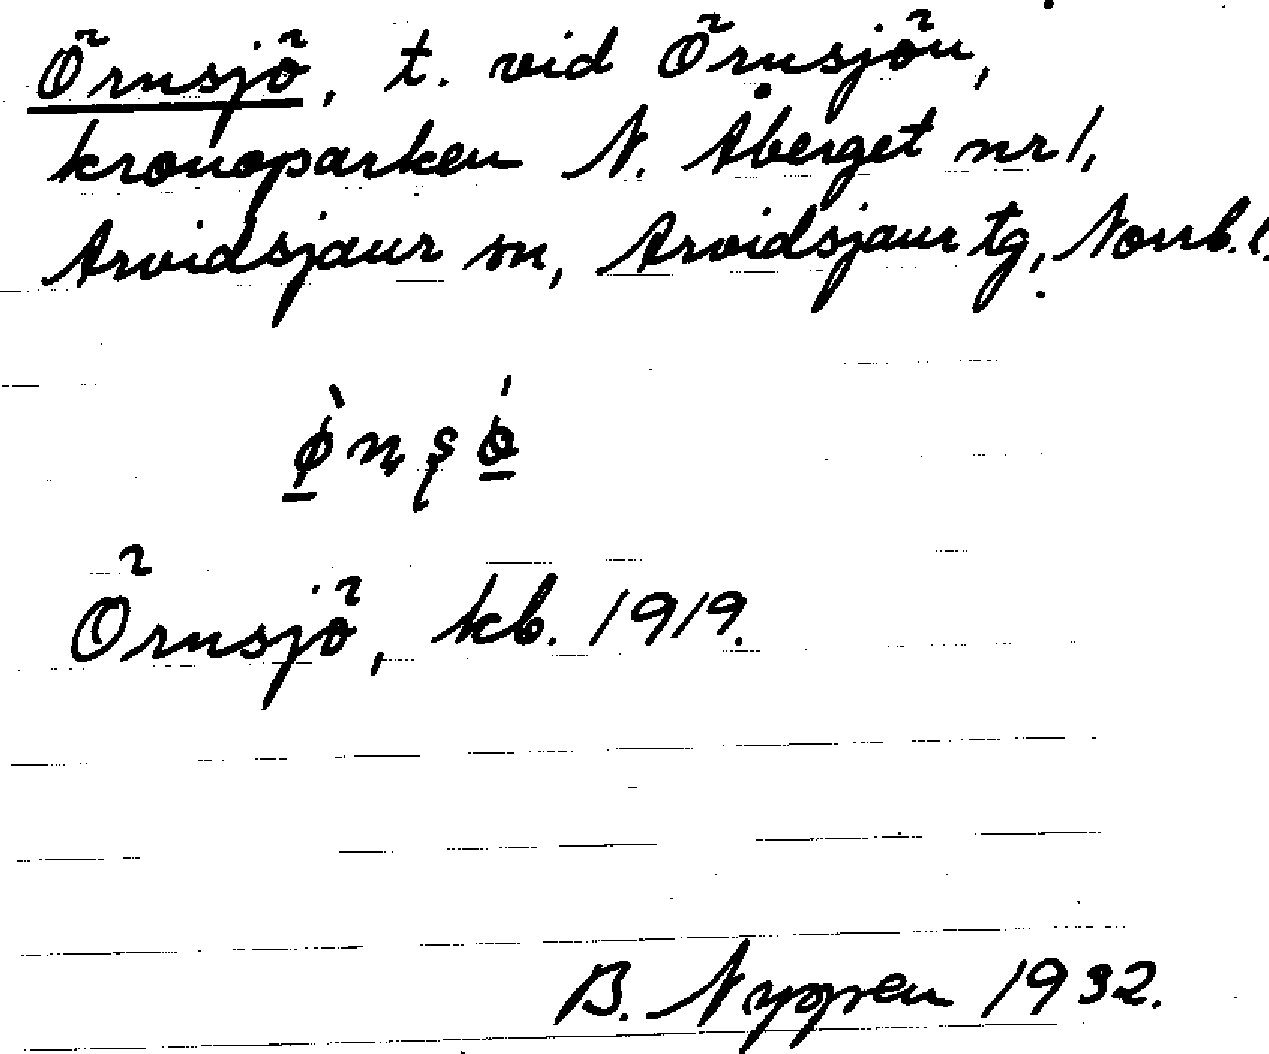 Örnsjö, t. vid Örnsjön,
kronoparken N. Åberget nr 1,
Arvidsjaur sn, Arvidsjaur tg, Norrb. l.
Örnsjö, kb. 1919.
B. Nygren 1932.